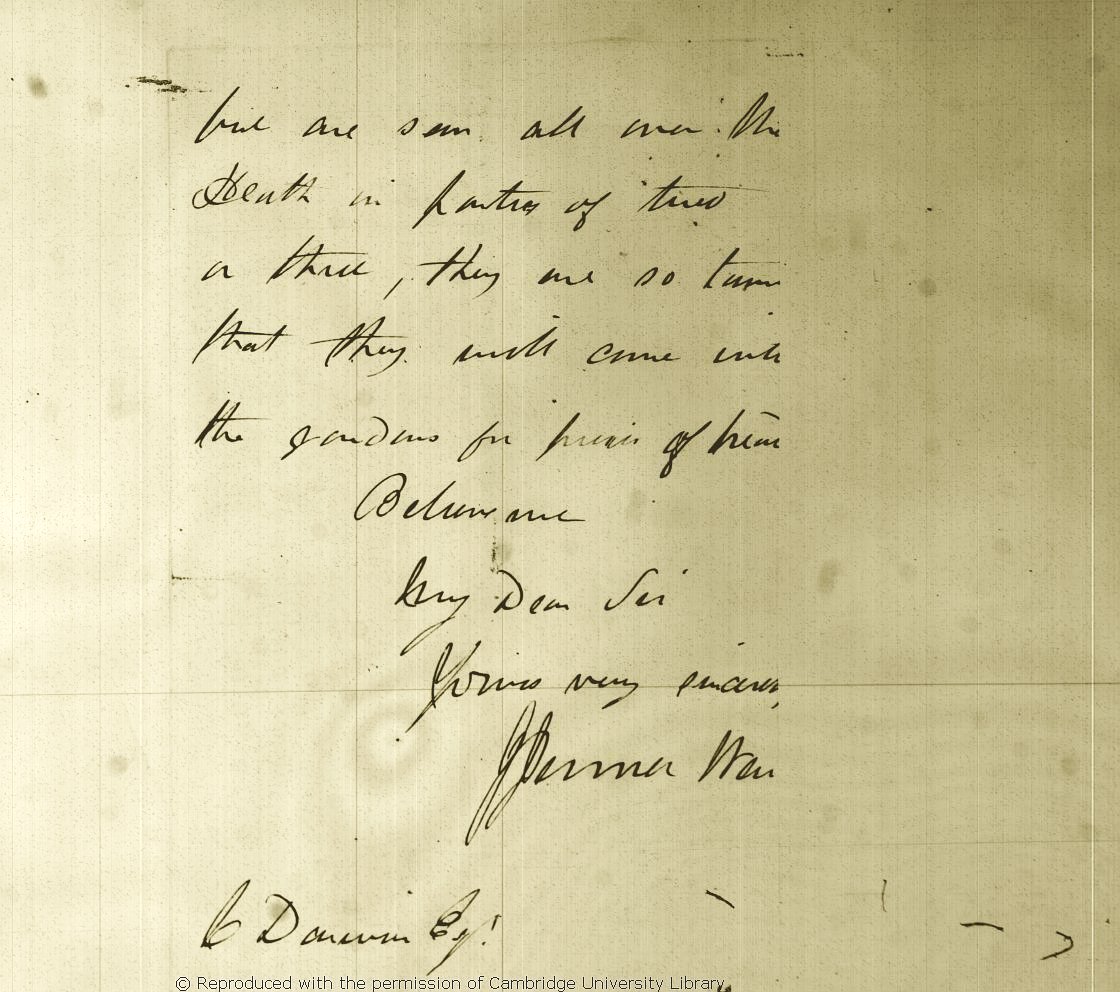 but are seen all over the
Heath in parties of two
or three, they are so tame
that they will come into
the gardens for pieces of bread
Believe me
My Dear Sir
Yours very sincerely
J Jenner Weir
C Darwin Esqr
© Reproduced with the permission of Cambridge University Library.